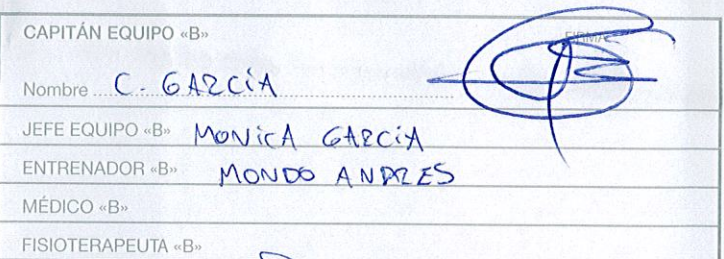 CAPITÁN EQUIPO «B»
FIRMA
Nombre C. GARCÍA
JEFE EQUIPO «B» MONICA GARCÍA
ENTRENADOR «B» MONDO ANDRES
MÉDICO «B»
FISIOTERAPEUTA «B»